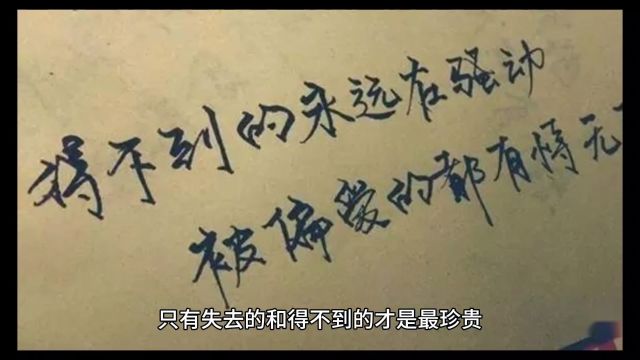 得不到的永远在骚动
被偏爱的都有恃无
只有失去的和得不到的才是最珍贵